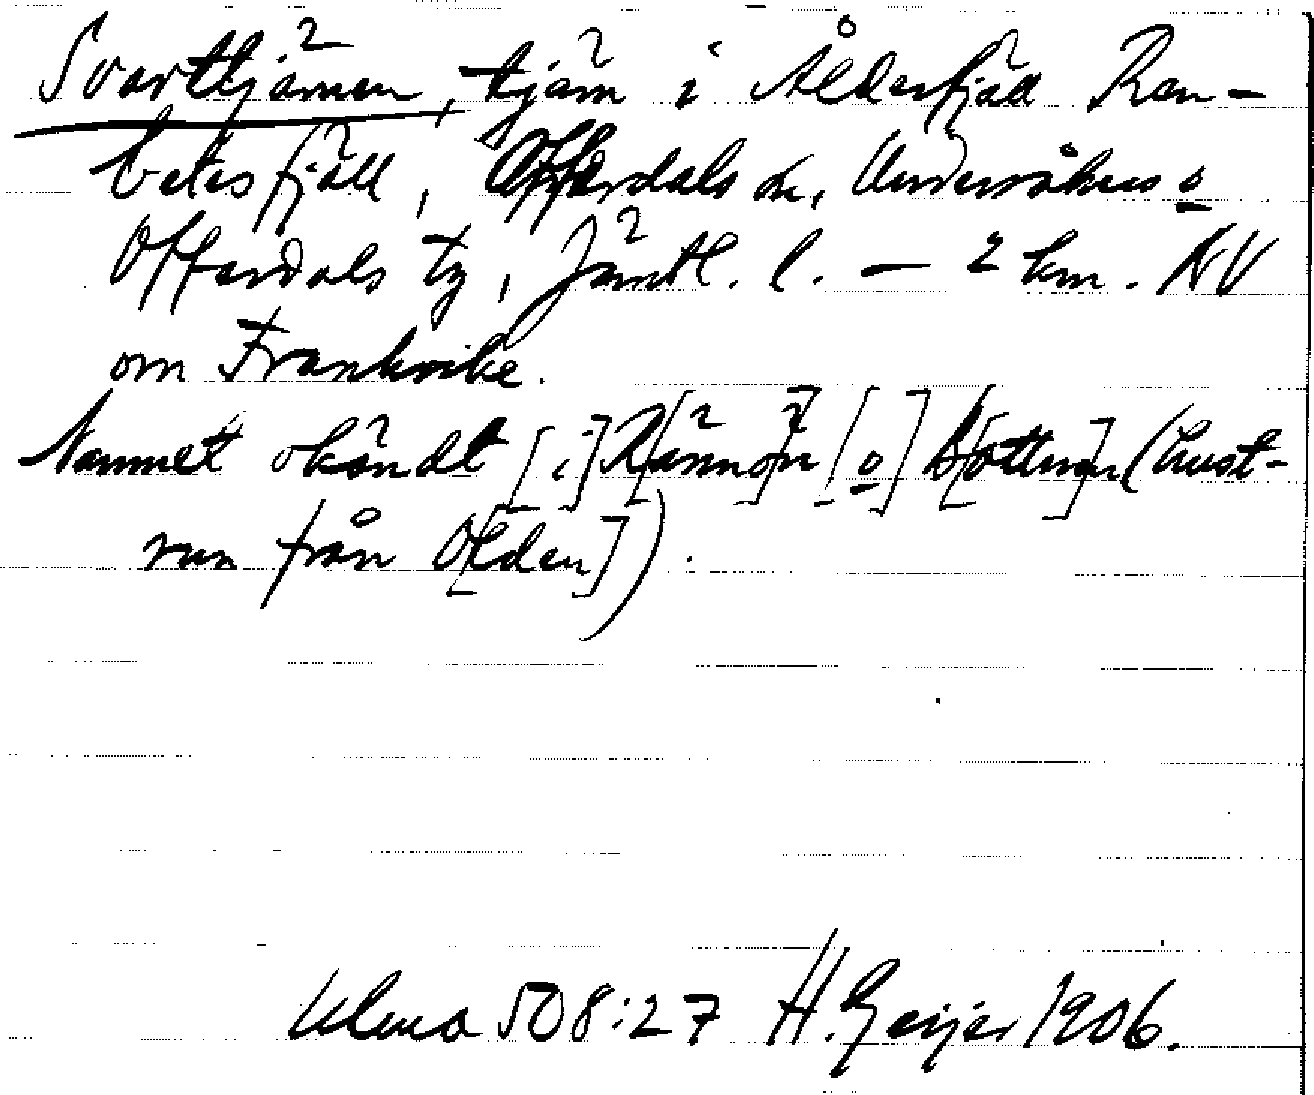 Svarttjärnen, tjärn i Ålderfjäll Ren-
betesfjäll, Offerdals sn, Undersåkers o
Offerdals tg, Jämtl. l. – 2 km. NV
om Frankrike.
Namnet okändt [i] Rännön [o] Bottnen (hust-
run från Olden]).
Ulma 508:27 H. Geijer 1906.